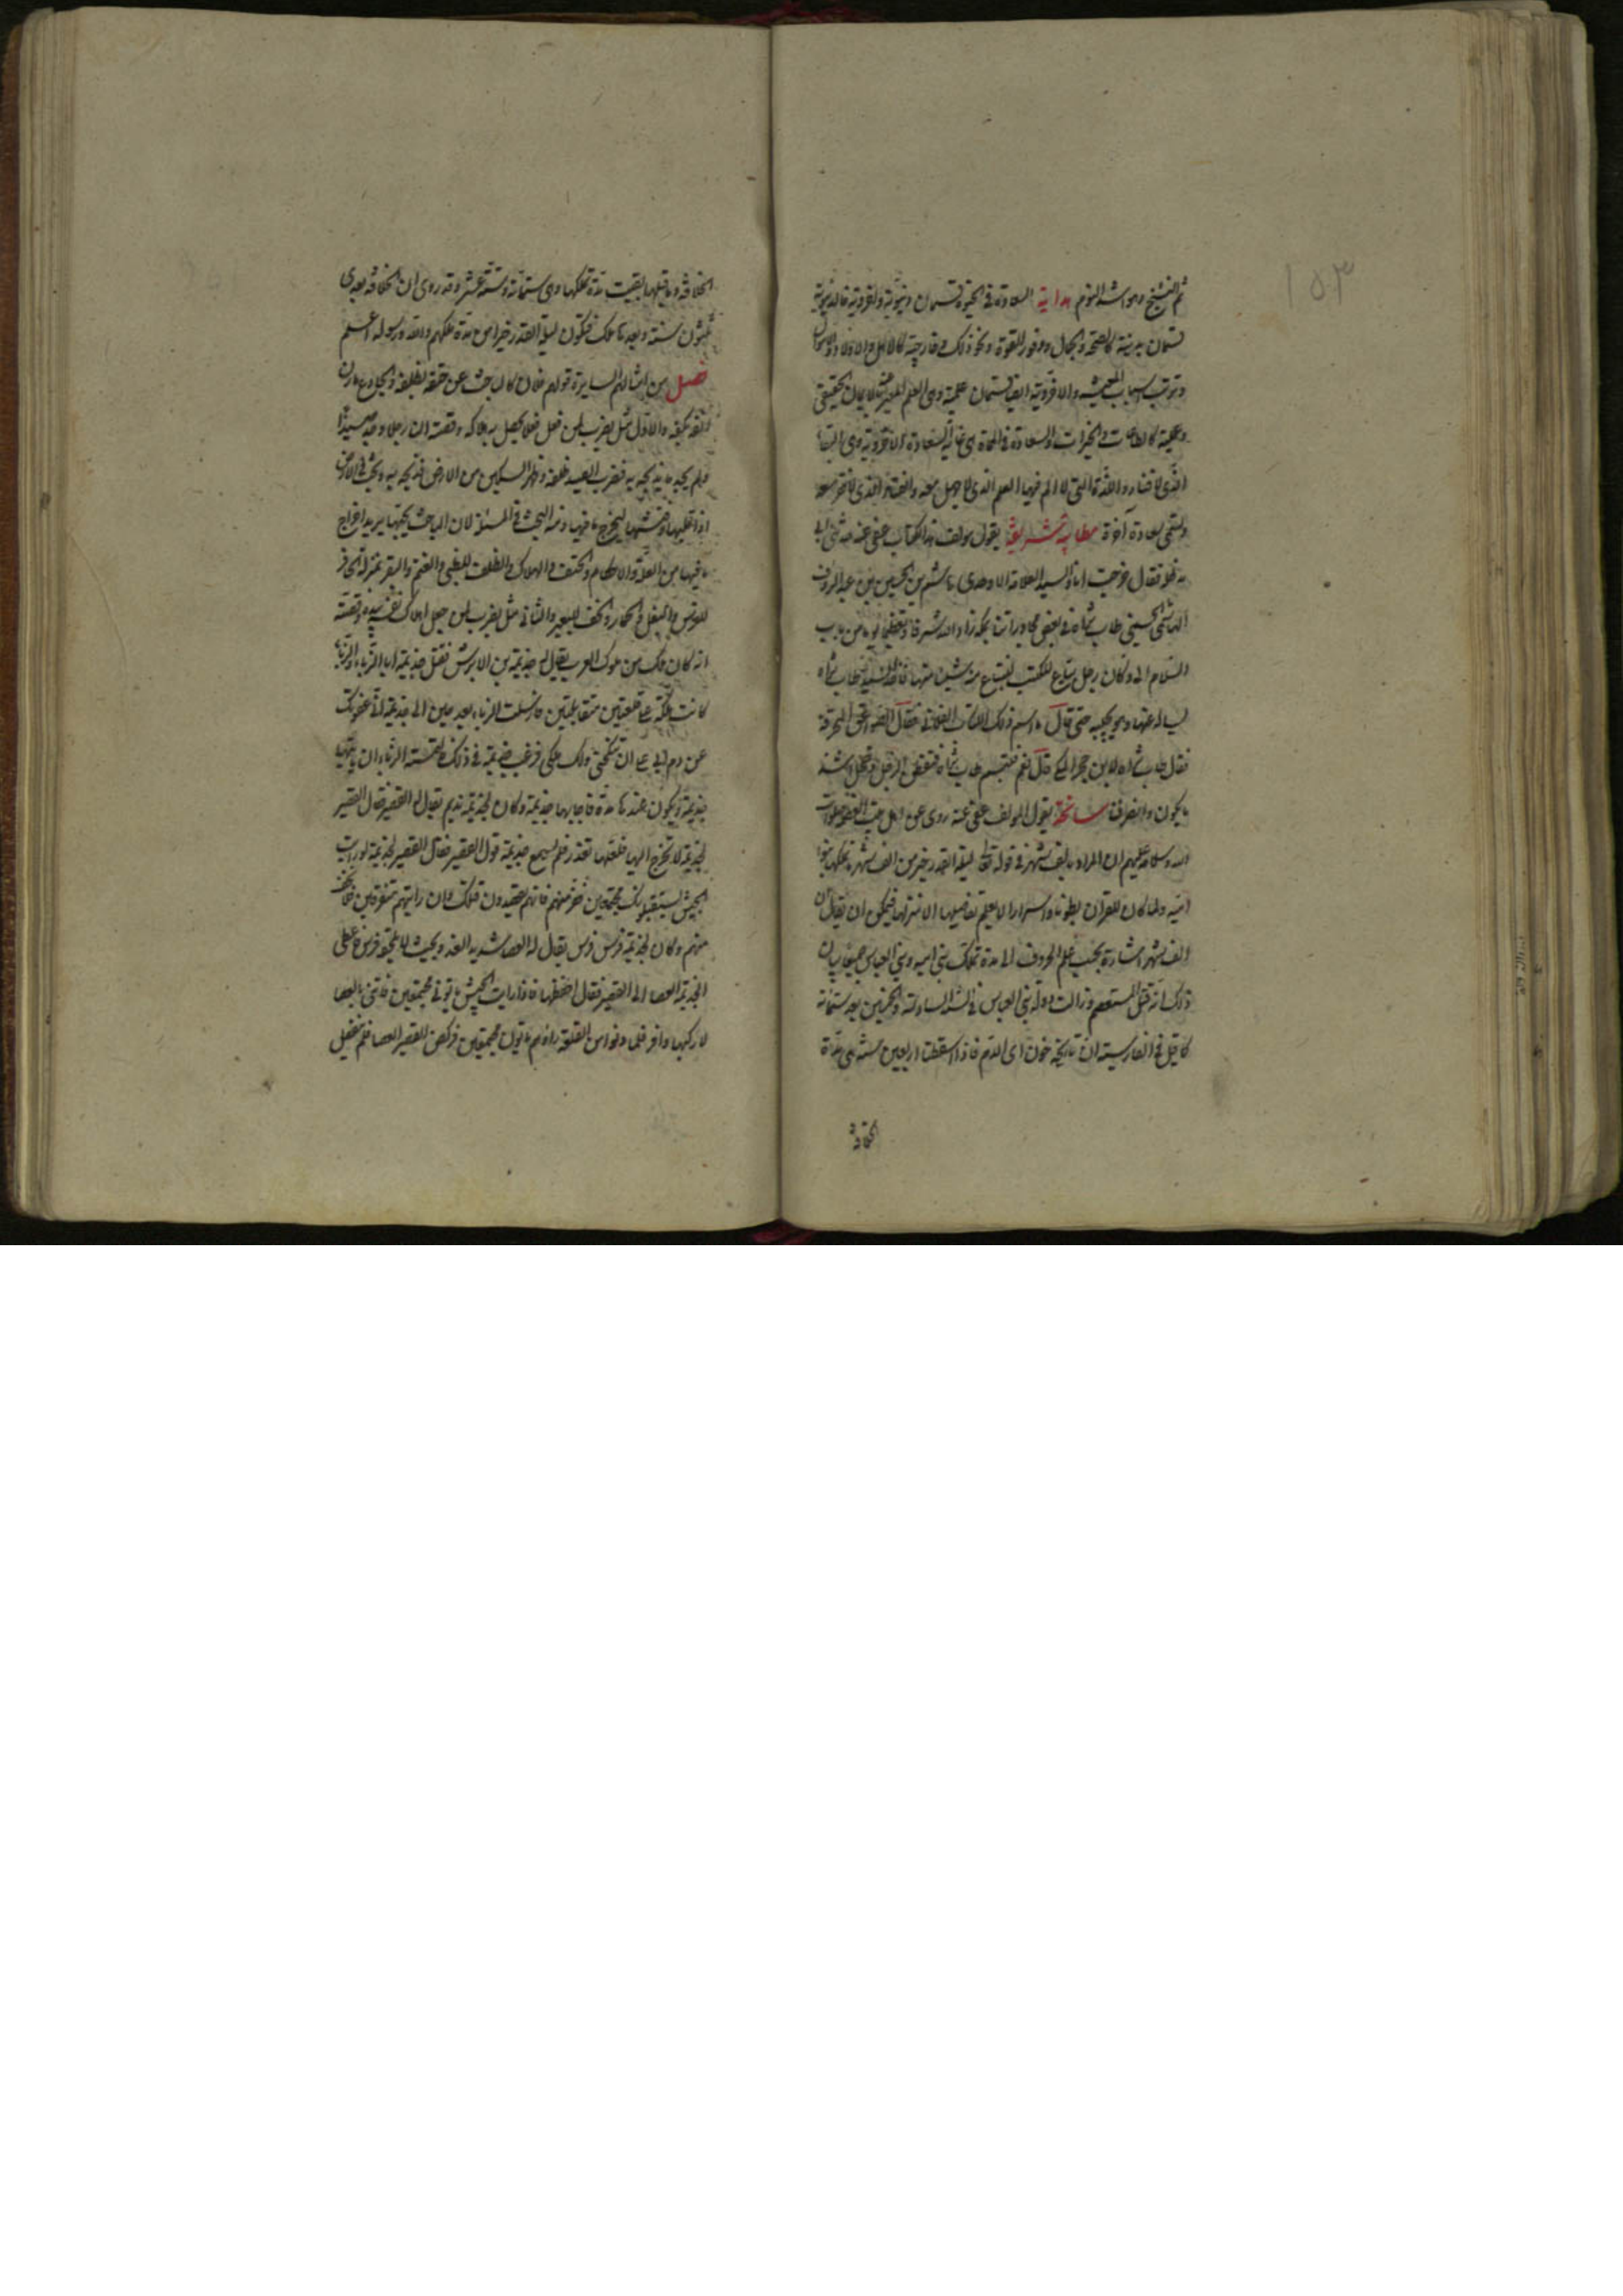 ١٥٣
ثم التشنج وهو اشد النوم هداية السعادة في الحيوة قسمان دنيوية واخروية فالدنيوية
قسمان بدنية كالصحة والجمال ووفور القوة ونحو ذلك وخارجية كالاهل والاولاد والاموال
وترتب اسباب المعيشة والاخروية ايضا قسمان علمية وهي العلم المعبر عنه بالايمان الحقيقي
وعملية كالطاعات والخيرات والسعادة في المماة هي غاية السعادة الاخروية وهي البقاء
الذي لا فناء له واللذة التي لا الم فيها والعلم الذي لا جهل معه والغناء الذي لا فقر معه
وتسمى سعادة آخرة مطايبة شريفة يقول مولف هذا الكتاب عفى عنه حدثني ابي
فقال خرجت انا والسيد العلامة الاوحدي هاشم بن الحسين بن عبد الروف
الهاشمي الحسيني طاب ثراه في بعض مجاوراتنا بمكة زاد الله شرفا وتعظيما يوما من باب
السلام وكان رجل يبتاع الكتب ليبتاع منه شيئا منها فاخذ السيد طاب ثراه
يساله عنها وهو يجيبه حتى قال ما اسم ذلك الكتاب الفلاني فقال الصواعق المحرقة
فقال طاب ثراه لابن حجر المكي قال نعم فتبسم طاب ثراه فنغض الرجل وخجل اشد
ما يكون وانصرفنا سانحة يقول المولف عفى عنه روى عن اهل بيت العصمة صلوات
الله وسلامه عليهم ان المراد بالف شهر في قوله تعالى ليلة القدر خير من الف شهر تملكها بنوا
امية ولما كان للقرآن بطونا واسرارا لا يعلم تفاصيلها الا منزلها فيمكن ان يقال ان
الف شهر اشارة بحسب علم الحروف الى مدة تملك بني امية وبني العباس جميعا بيان
ذلك انه قتل المستعصم وزالت دولة بني العباس في السنة السادسة والخمسين بعد ستمائة
كما قيل في الفارسية ان تاريخه خون اى الدم فاذا اسقطت اربعين سنة هي مدة
الخلافة
الخلافة وما قبلها بقيت مدة تملكها وهي ستمائة وستة عشر وقد روى ان الخلافة بعدي
ثلثون سنة وبعدها ملك فتكون ليلة القدر خيرا من مدة ملكهم والله ورسوله اعلم
فصل من امثالهم السايرة قولهم فلان كالباحث عن حتفه بظلفه والجادع مارن
انفه بكفه والاول مثل يضرب لمن فعل فعلا يحصل به هلاكه وقصته ان رجلا وجد صيدا
ولم يجد ما يذبحه به فضرب الصيد بظلفه وظهر السكين من الارض فذبحه به وبحث في الارض
اذا قلبها وفتشها ليخرج ما فيها ومنه البحث في المسئلة لان الباحث يحبها يريد اخراج
ما فيها من العلة والاحكام والحتف الهلاك والظلف للظبي والغنم والبقر بمنزلة الحافر
للفرس والبغل والحمار والخف للبعير والثاني مثل يضرب لمن جعل اهلاك نفسه بيده وقصته
انه كان ملك من ملوك العرب يقال له جذيمة بن الابرش فقتل جذيمة ابا الزباء والزباء
كانت ملكة على قلعتين متقابلتين فارسلت الزباء بعد حين الى جذيمة اني عفوتك
عن دم ابي على ان تنكحني ولك ملكي فرغب جذيمة في ذلك فالتمسته الزباء ان ياتيها
جذيمة ويكون عندها مدة فاجابها جذيمة وكان لجذيمة نديم يقال له القصير فقال القصير
لجذيمة لا تخرج اليها فلعلها تغدر فلم يسمع جذيمة قول القصير فقال القصير لجذيمة لو رايت
الجيش يستقبلونك مجتمعين فر منهم فانهم يقصدون قتلك وان رايتهم متفرقين فلا تخف
منهم وكان لجذيمة فرس يقال له العصا شديد العدو بحيث لا يلحقه فرس فاعطى
الجذيمة العصا الى القصير فقال احفظها فاذا رايت الجيش ياتوني مجتمعين فاتني بالعصا
لاركبها وافر فلما دنوا من القلعة راهم ياتون مجتمعين فركض القصير العصا فلم يغفل